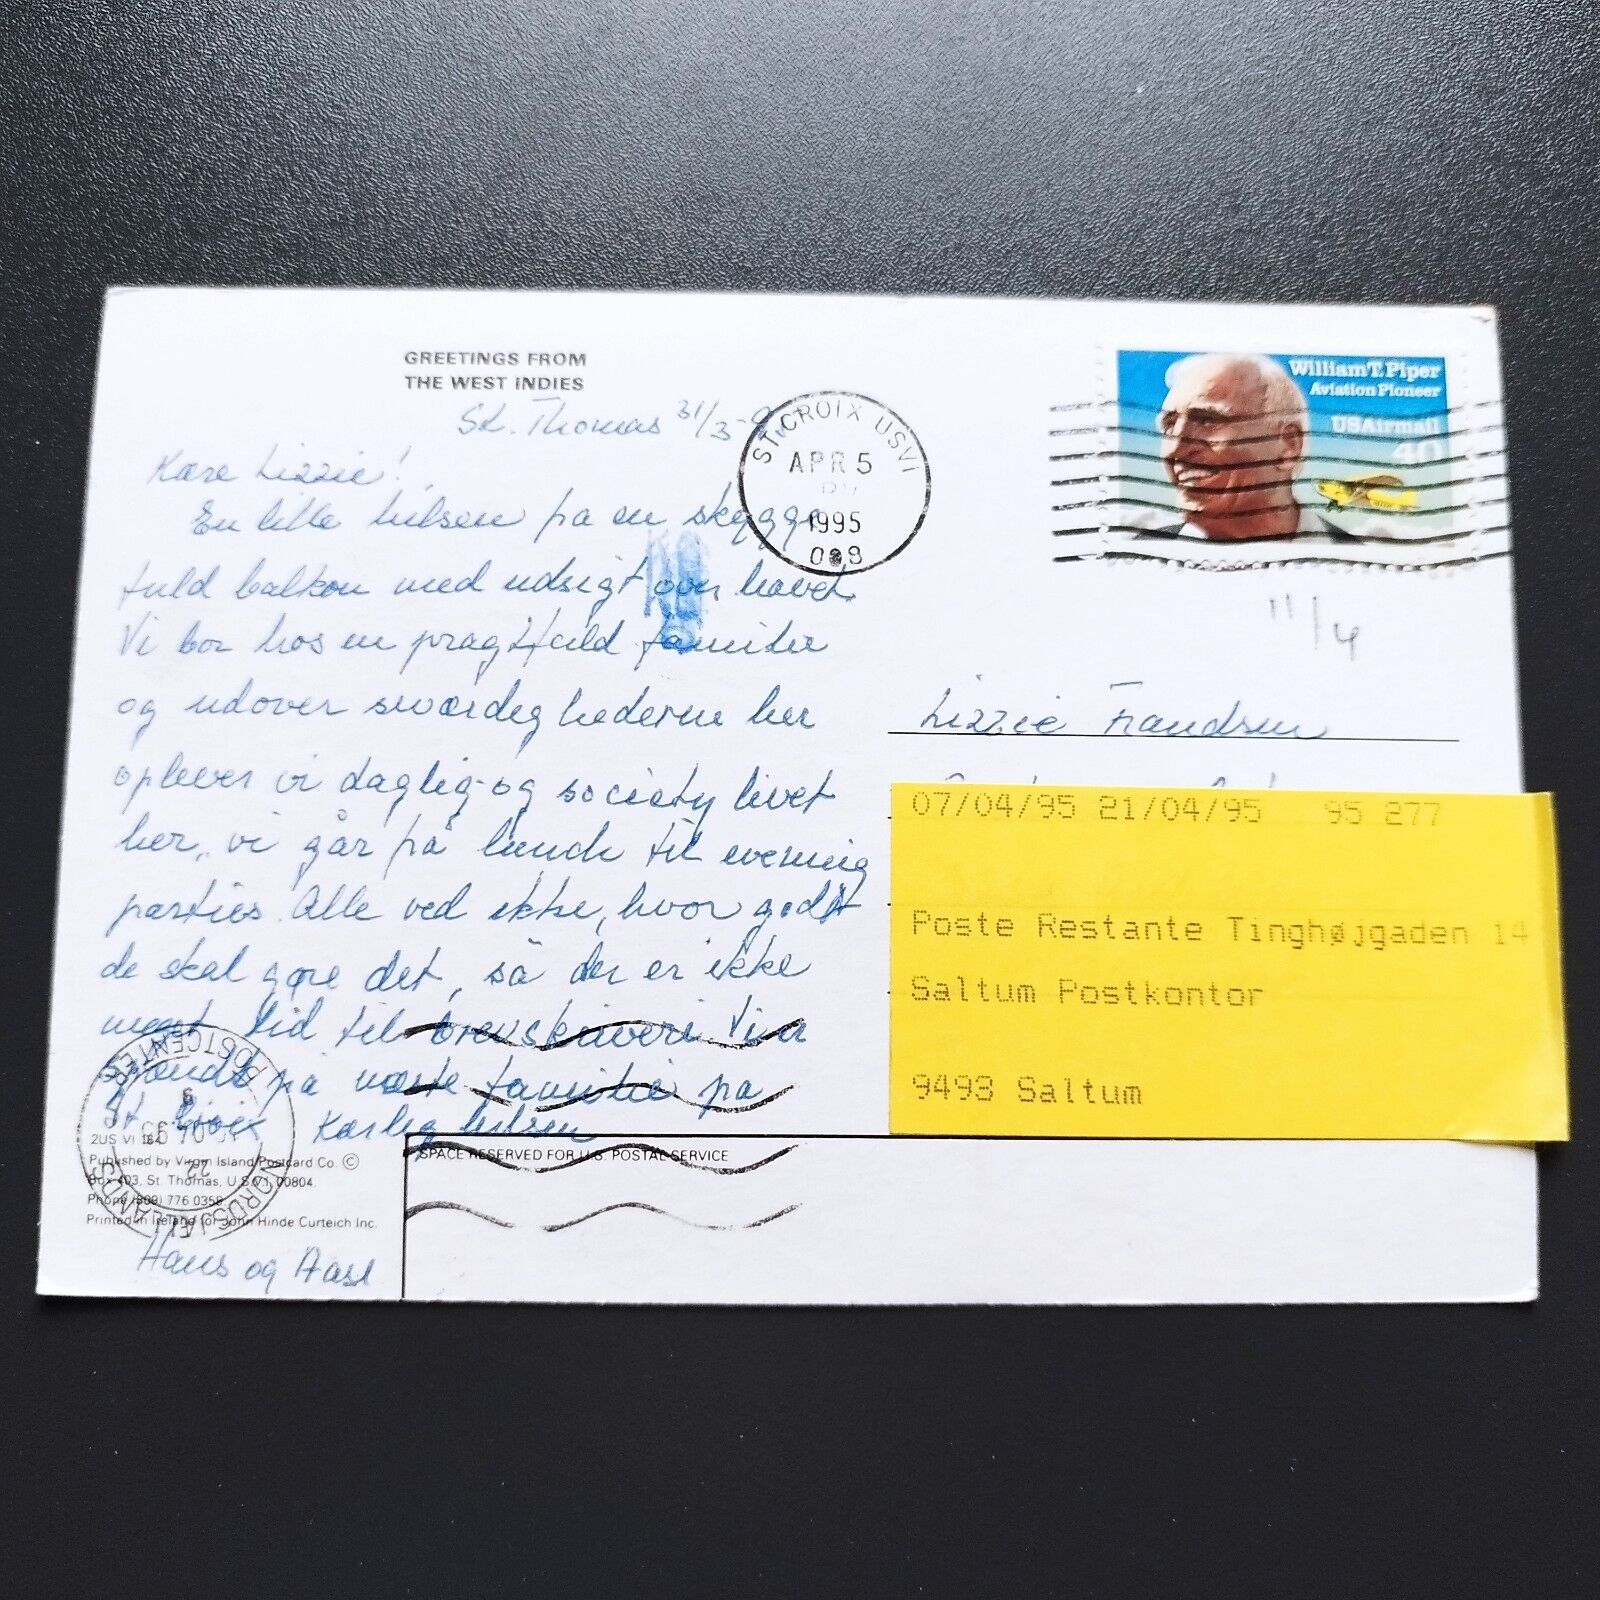 GREETINGS FROM
THE WEST INDIES
St. Thomas 31/3-
Kære Lizzie!
En lille hilsen på en skygge
fuld balkon med udsigt over havet.
Vi bor hos en pragtfuld familie
og udover seværdighederne her
oplever vi daglig og society livet
her, vi går på lunch til evening
parties. Alle ved ikke, hvor godt
de skal gøre det, så der er ikke
meget tid til brevskriveri. Vi er
på næste familie på
St. Croix Kærlig hilsen
Hans og Aase
2US VI 184
Published by Virgin Island Postcard Co. ©
Box 403, St. Thomas, U.S.V.I. 00804.
Phone (809) 776 0358
Printed in Ireland for John Hinde Curteich Inc.
SPACE RESERVED FOR U.S. POSTAL SERVICE
POSTCENTER
NORDSJÆLLAND
22
ST. CROIX USVI
APR 5
1995
William T. Piper
Aviation Pioneer
USAirmail
40
11/4
Lizzie Frandsen
07/04/95 21/04/95 95 277
Poste Restante Tinghøjgaden 14
Saltum Postkontor
9493 Saltum